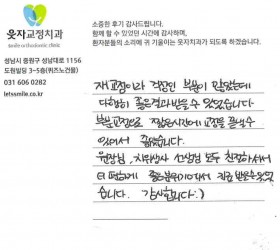 웃자교정치과
smile orthodontic clinic
성남시 중원구 성남대로 1156
도원빌딩 3~5층(퀴즈노건물)
031 606 0282
letssmile.co.kr
소중한 후기 감사드립니다.
함께 할 수 있었던 시간에 감사하며,
환자분들의 소리에 귀 기울이는 웃자치과가 되도록 하겠습니다.
재교정이라 걱정인 부분이 많았는데
다행히 좋은결과 받을 수 있었습니다
부분교정으로 짧은시간에 교정을 끝낼수
있어서 좋았습니다.
원장님, 치위생사 선생님 모두 친절하셔서
더 편하게 좋은분위기에서 치료 받았
습니다. 감사합니다 :)